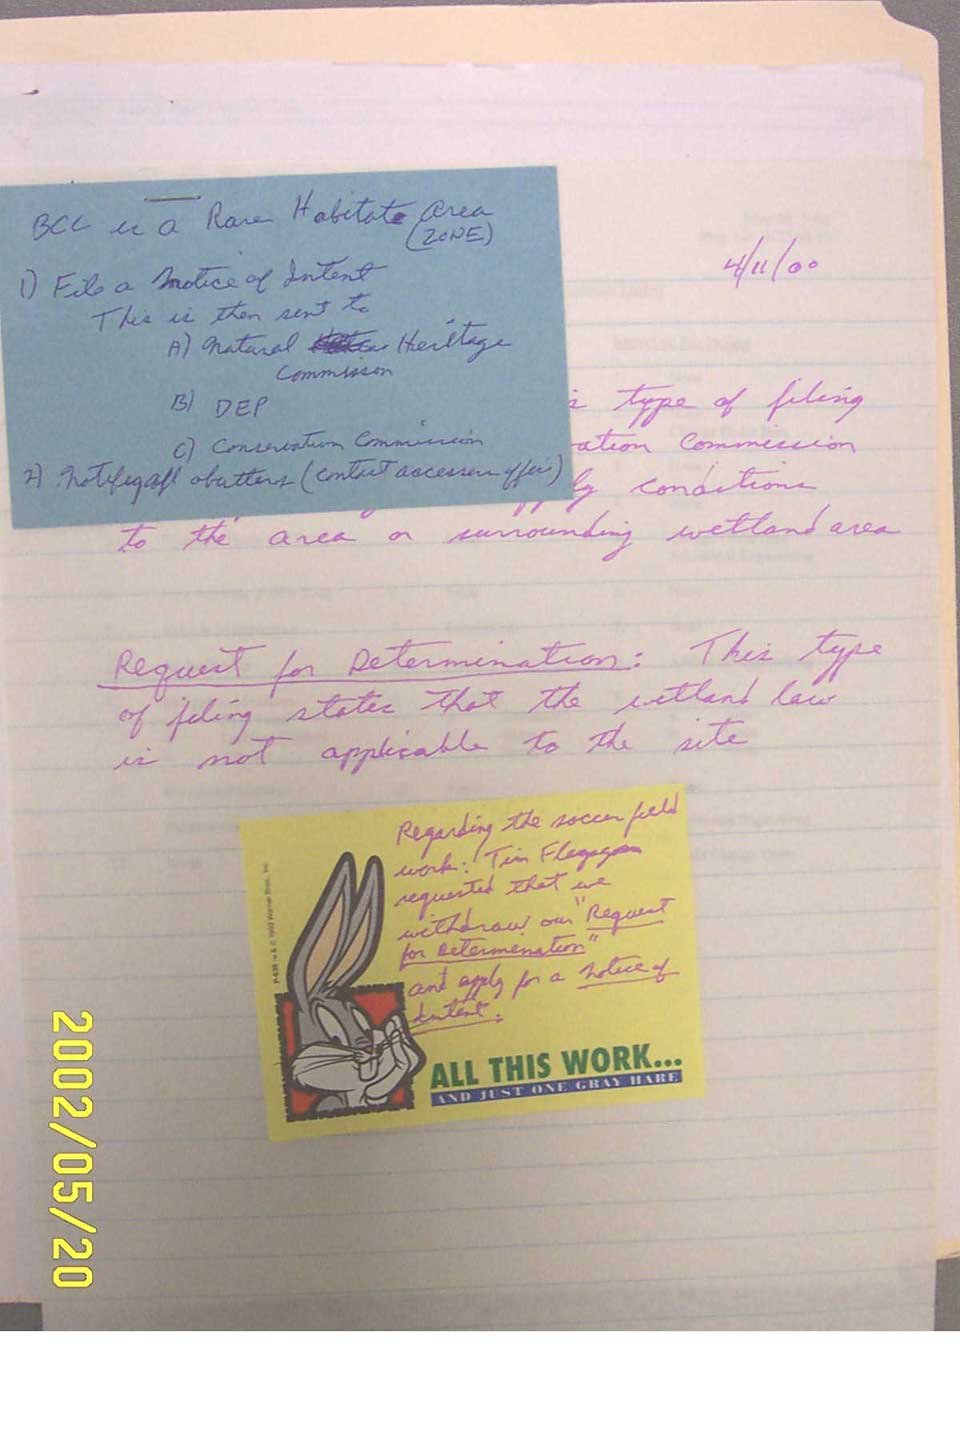 BCC is a Rare Habitate Area
(ZONE)
1) File a Notice of Intent
This is then sent to
A) Natural Heritage
Commisson
B) DEP
C) Conservation Commission
2) Notify all abutters (contact accessers office)
4/11/00
type of filing
Commission
conditions
to the area or surrounding wetland area
Request for Determination: This type
of filing states that the wetland law
is not applicable to the site
Regarding the soccer field
work: Tim
requested that we
withdraw our "Request
for Determenation"
and apply for a Notice of
Intent.
ALL THIS WORK...
AND JUST ONE GRAY HARE
2002/05/20